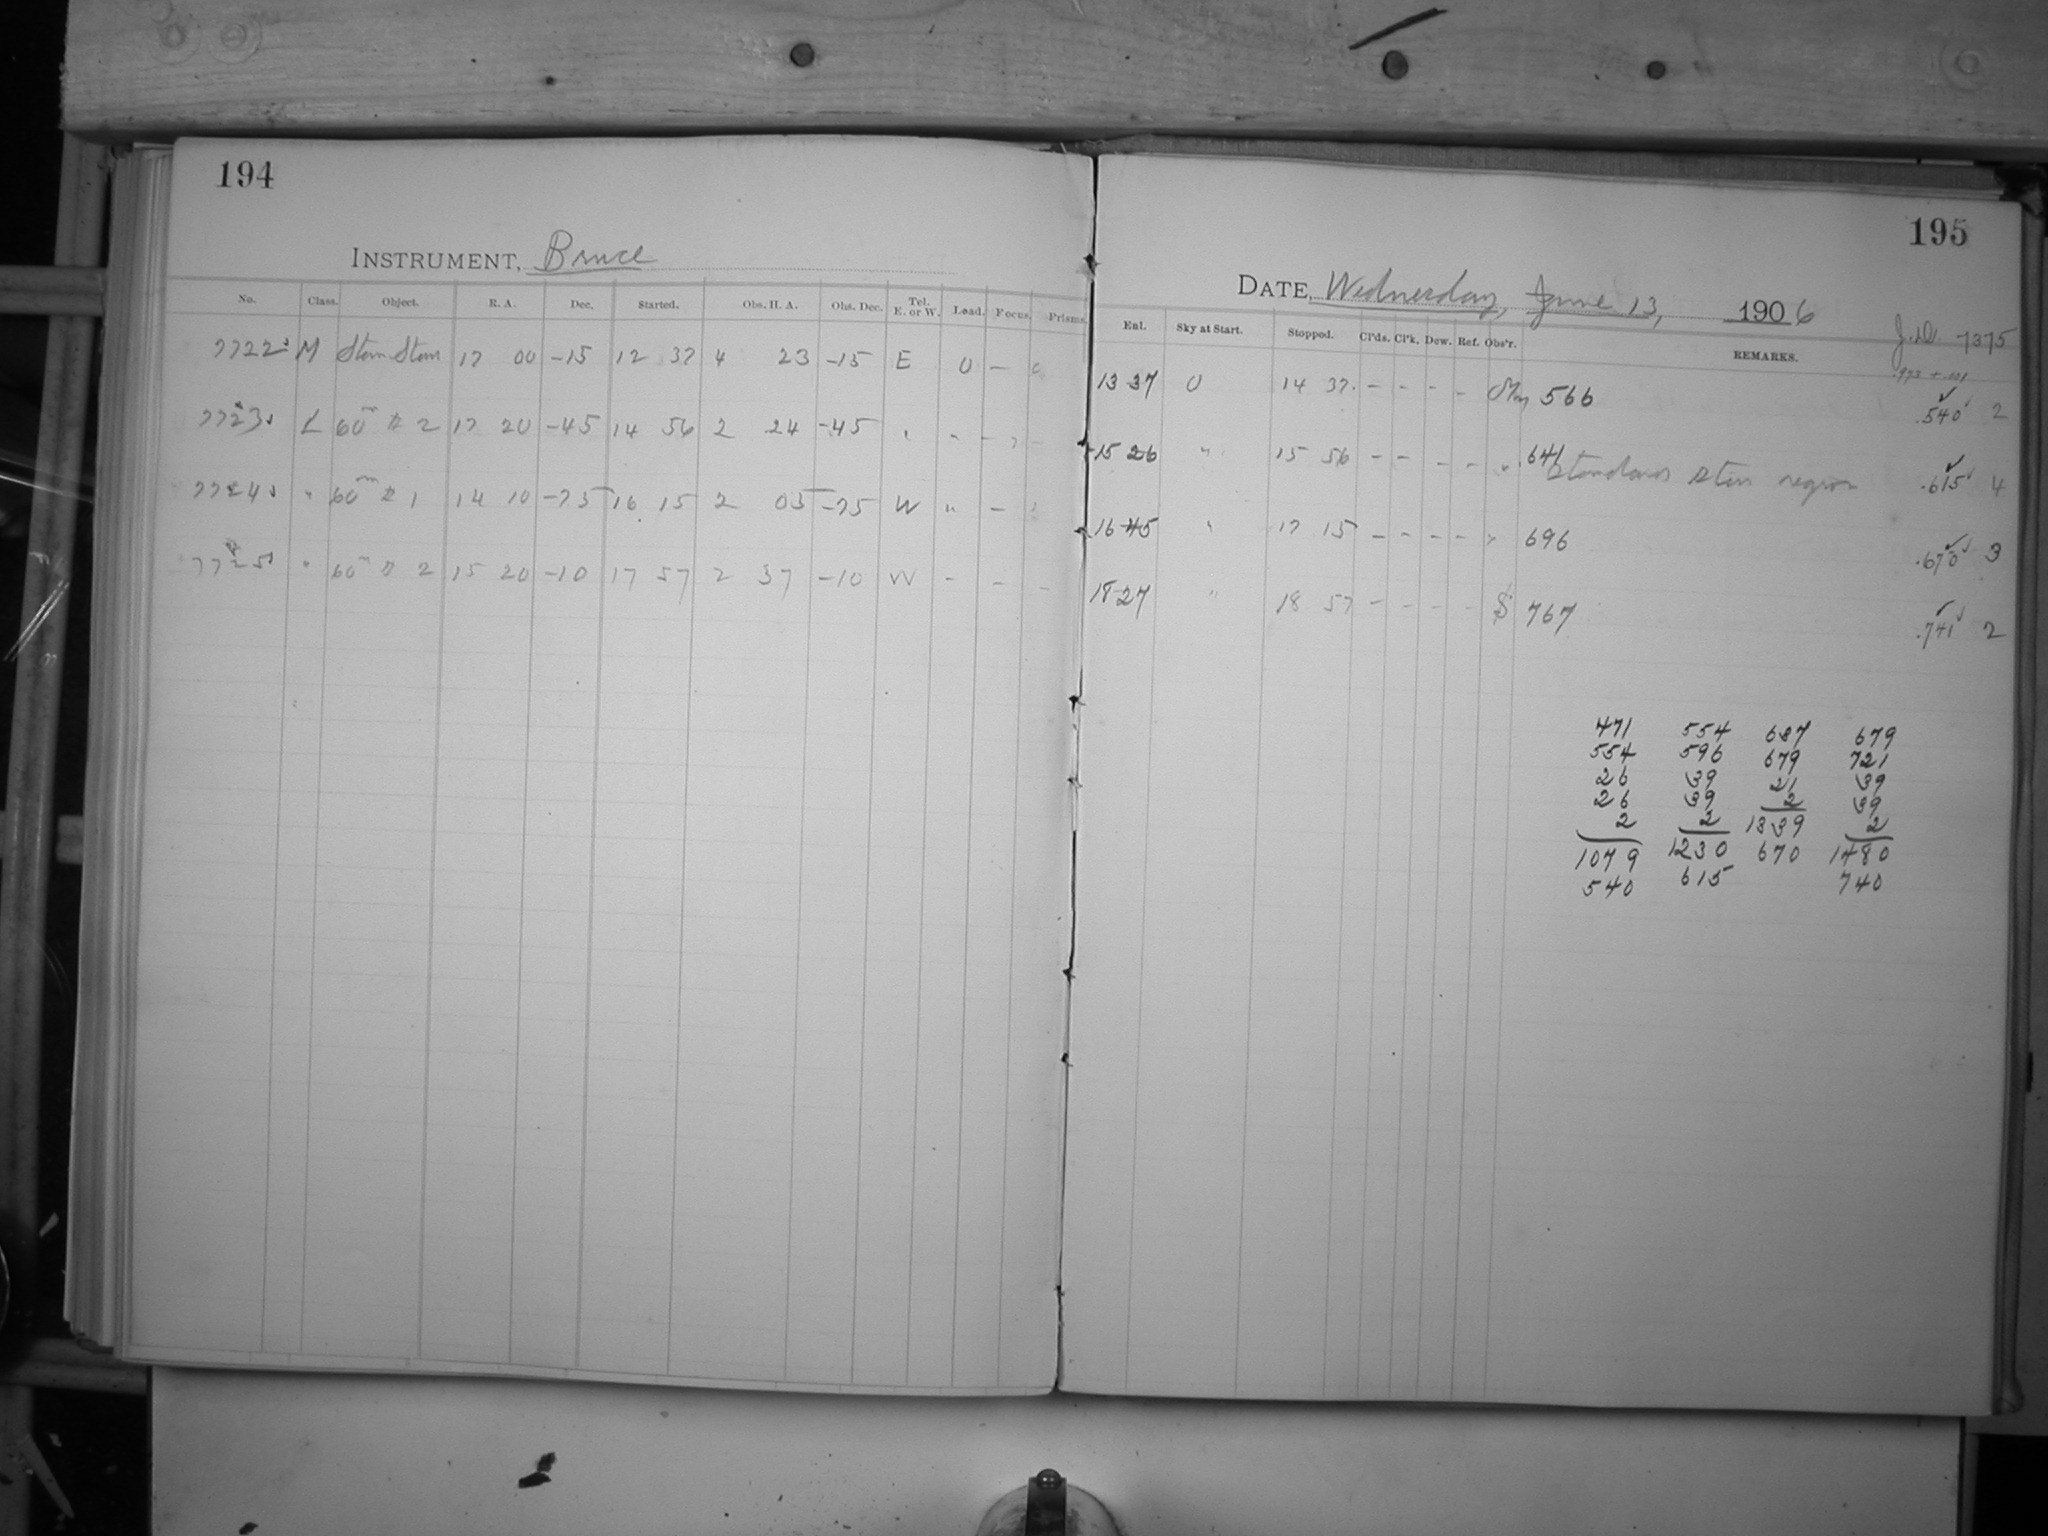 194
INSTRUMENT, Bruce
No. Class. Object. R. A. Dec. Started. Obs. H. A. Obs. Dec. Tel. E. or W. Load. Focus. Prisms.
7722 M 17 00 -15 12 37 4 23 -15 E 0 -
7723 L 60m # 2 17 20 -45 14 56 2 24 -45 " " -
7724 " 60m # 1 14 10 -75 16 15 2 05 -75 W " -
7725 " 60m # 2 15 20 -10 17 57 2 37 -10 W - - -
195
DATE, Wednesday, June 13, 1906
J.D. 7375
Enl. Sky at Start. Stopped. Cl'ds. Cl'k. Dew. Ref. Obs'r. REMARKS.
.973 + .001
13 37 0 14 37 - - - - 566 .540 2
15 26 " 15 56 - - - - " .641 Standard Star region .615 4
16 45 " 17 15 - - - - " 696 .670 3
18 27 " 18 57 - - - - S 767 .741 2
471 554 637 679
554 596 679 721
26 39 21 39
26 39 2 39
2 2 1339 2
1079 1230 670 1480
540 615 740